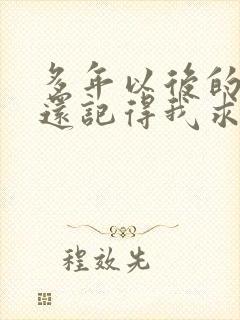 多年以後的
還記得我求
程效先